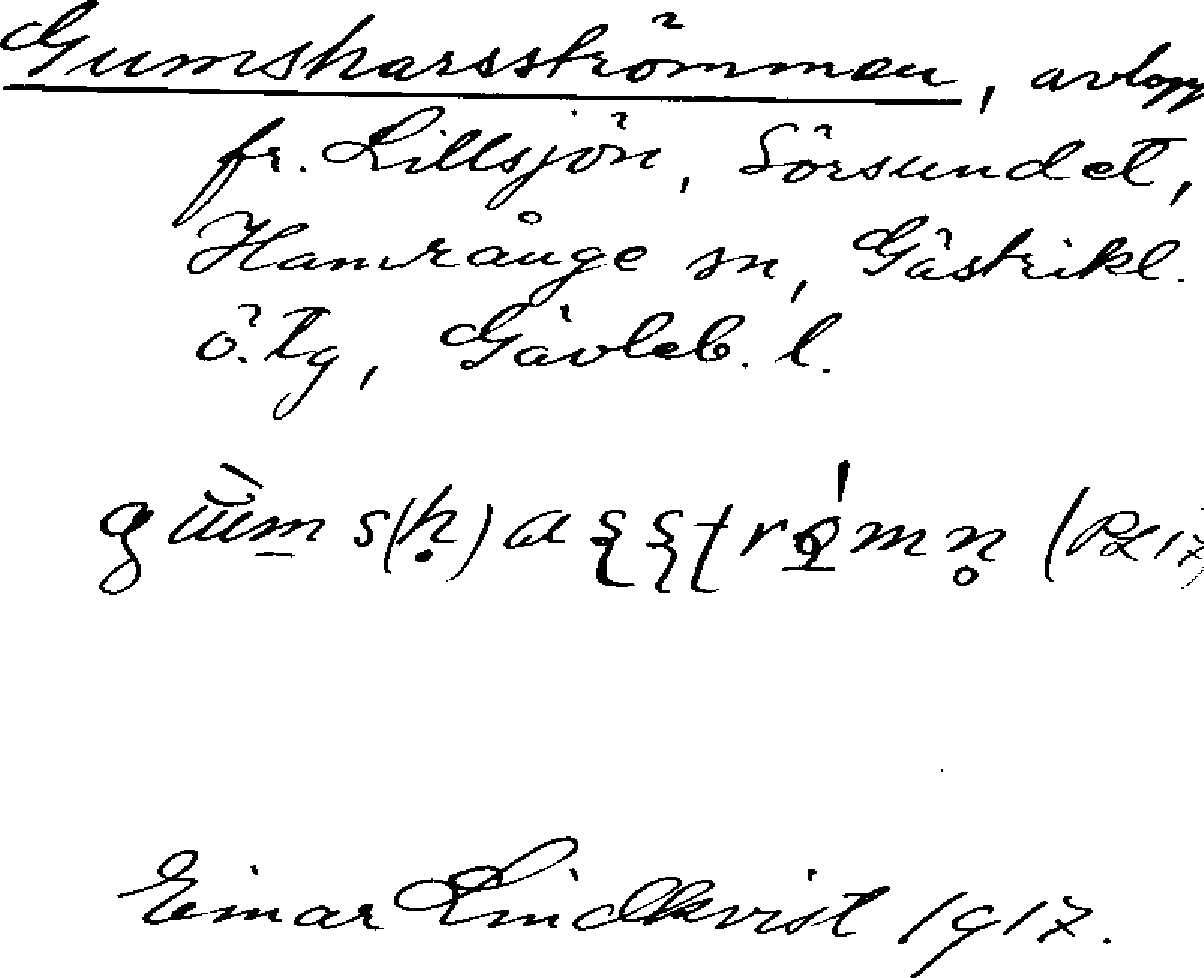 Gumsharsströmmen, avlopp
fr. Lillsjön, Sörsundet,
Hamrånge sn, Gästrikl.
ö. tg, Gävleb. l.
Einar Lindkvist 1917.